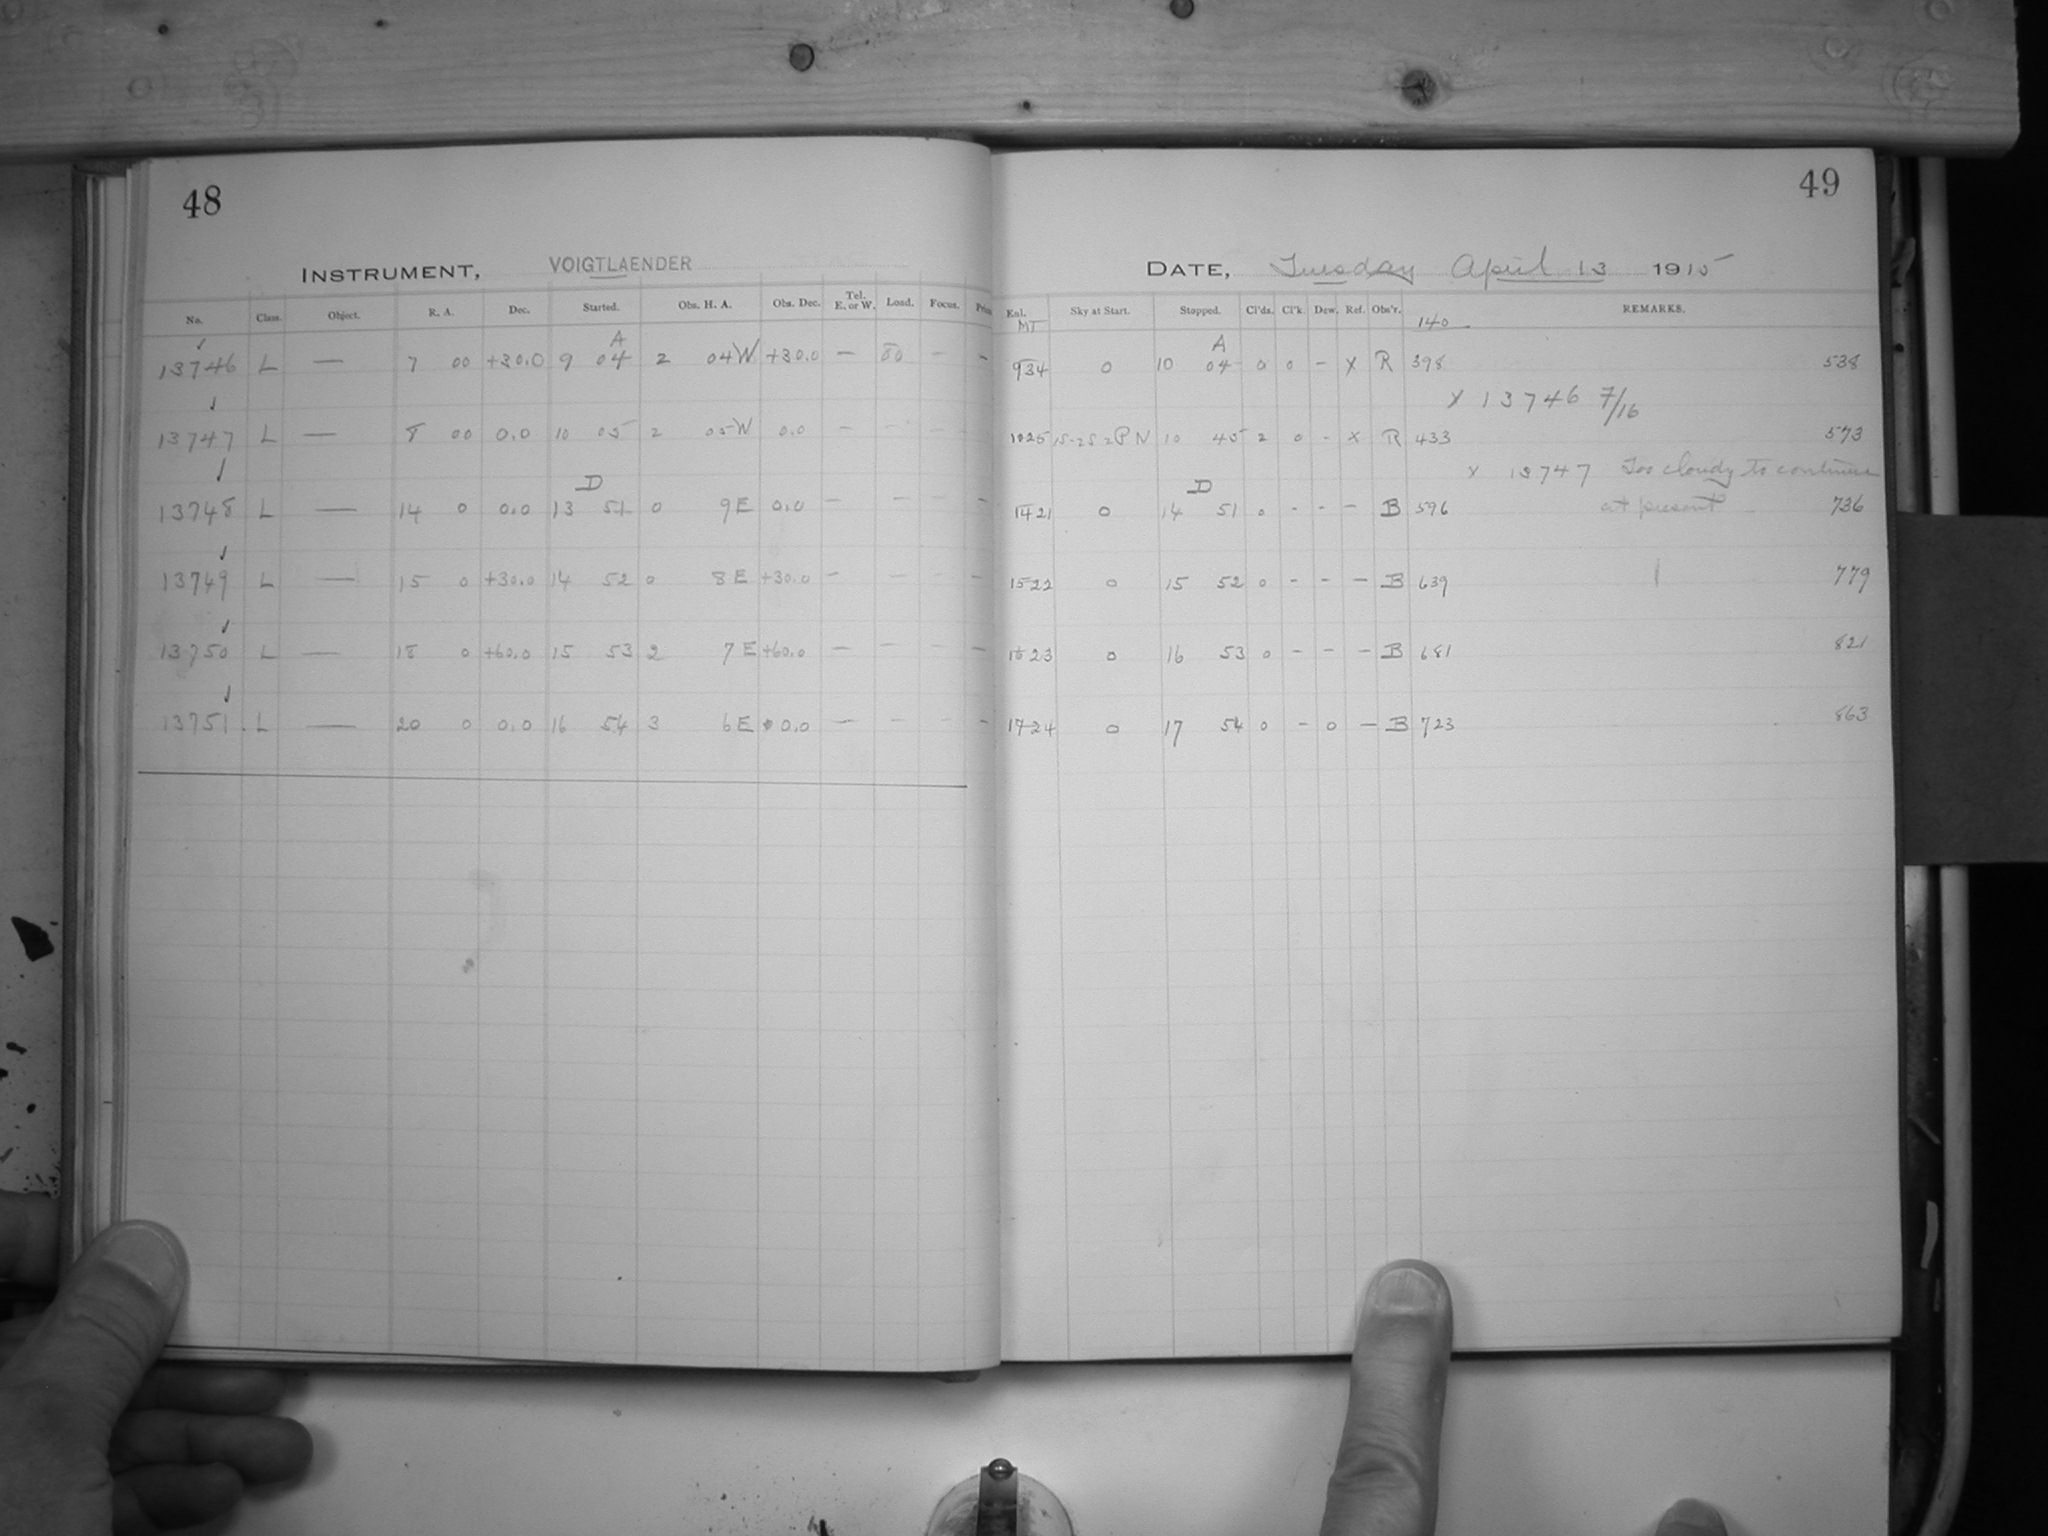 48
INSTRUMENT, VOIGTLAENDER
No. Class. Object. R. A. Dec. Started. Obs. H. A. Obs. Dec. Tel. E. or W. Load. Focus.
A
13746 L — 7 00 +30.0 9 04 2 04W +30.0 — 80 — —
13747 L — 8 00 0.0 10 05 2 05W 0.0 — — —
D
13748 L — 14 0 0.0 13 51 0 9E 0.0 — — — —
13749 L — 15 0 +30.0 14 52 0 8E +30.0 — — — —
13750 L — 18 0 +60.0 15 53 2 7E +60.0 — — — —
13751 L — 20 0 0.0 16 54 3 6E 0.0 — — — —
49
DATE, Tuesday April 13 1915
Sky at Start. Stopped. Cl'ds. Cl'k. Dew. Ref. Obs'r. REMARKS.
MT 140
A
934 0 10 04 0 0 - X R 398 538
X 13746 7/16
1025 15-25 2PN 10 45 2 0 - X R 433 573
X 13747 Too cloudy to continue
D
at present
1421 0 14 51 0 - - - B 596 736
1522 0 15 52 0 - - - B 639 779
1623 0 16 53 0 - - - B 681 821
1724 0 17 54 0 - 0 - B 723 863